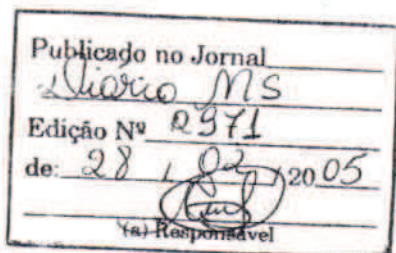 Publicado no Jornal
Diario MS
Edição Nº 2971
de: 28 / 02 / 2005
(a) Responsável